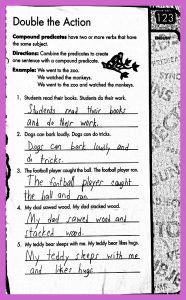 Double the Action
123
Compound predicates have two or more verbs that have
the same subject.
Directions: Combine the predicates to create
one sentence with a compound predicate.
Example: We went to the zoo.
We watched the monkeys.
We went to the zoo and watched the monkeys.
1. Students read their books. Students do their work.
Students read their books
and do their work.
2. Dogs can bark loudly. Dogs can do tricks.
Dogs can bark loudly and
do tricks.
3. The football player caught the ball. The football player ran.
The football player caught
the ball and ran.
4. My dad sawed wood. My dad stacked wood.
My dad sawed wood and
stacked wood.
5. My teddy bear sleeps with me. My teddy bear likes hugs.
My teddy sleeps with me
and likes hugs